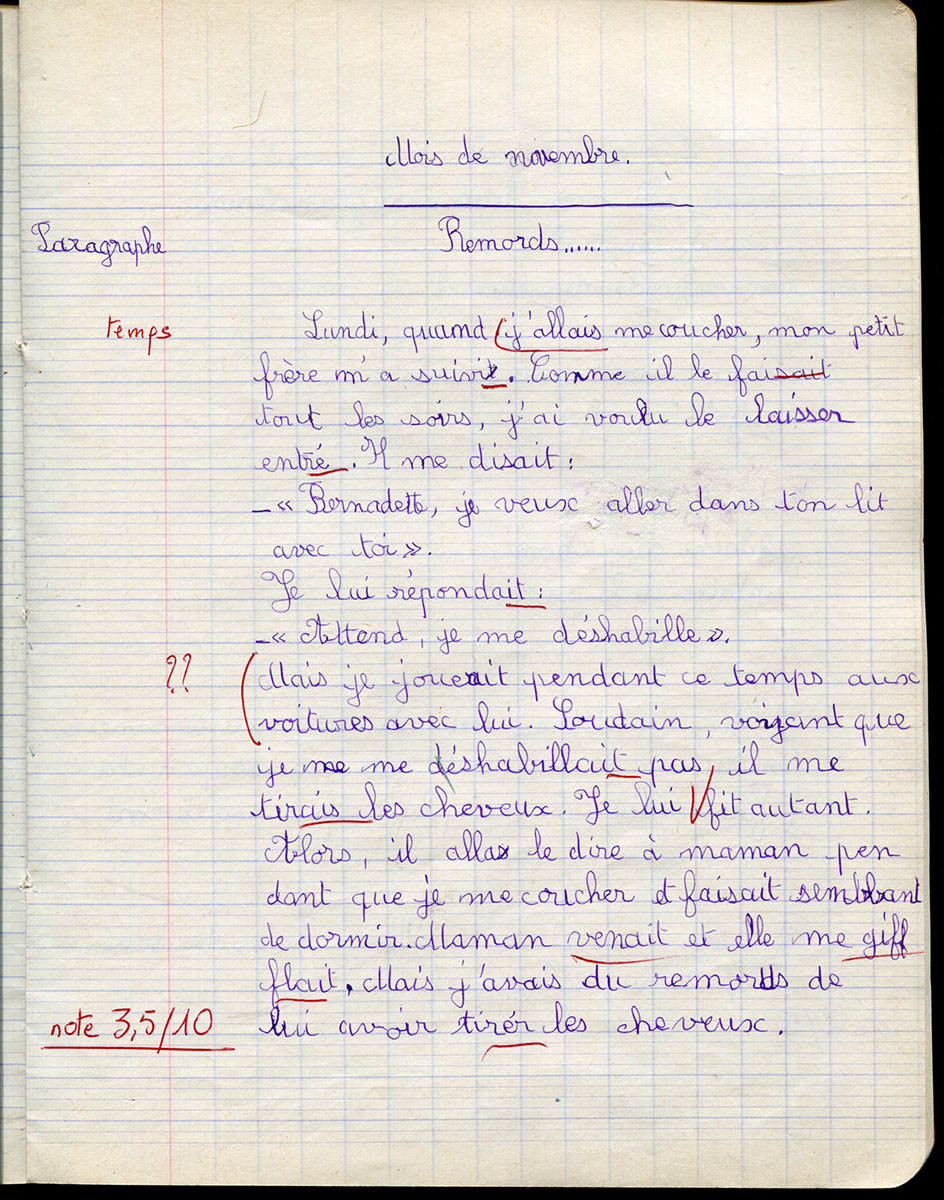 Mois de novembre.
Paragraphe Remords......
temps Lundi, quand j'allais me coucher, mon petit
frère m'a suivit. Comme il le faisait
tout les soirs, j'ai voulu le laisser
entré. Il me disait :
_« Bernadette, je veux aller dans ton lit
avec toi ».
Je lui répondait :
_« Attend, je me déshabille ».
?? Mais je jouait pendant ce temps aux
voitures avec lui. Soudain, voyant que
je me me déshabillait pas, il me
tirais les cheveux. Je lui fit autant.
Alors, il alla le dire à maman pen
dant que je me coucher et faisait semblant
de dormir. Maman venait et elle me giff
flait. Mais j'avais du remords de
note 3,5/10 lui avoir tirér les cheveux.